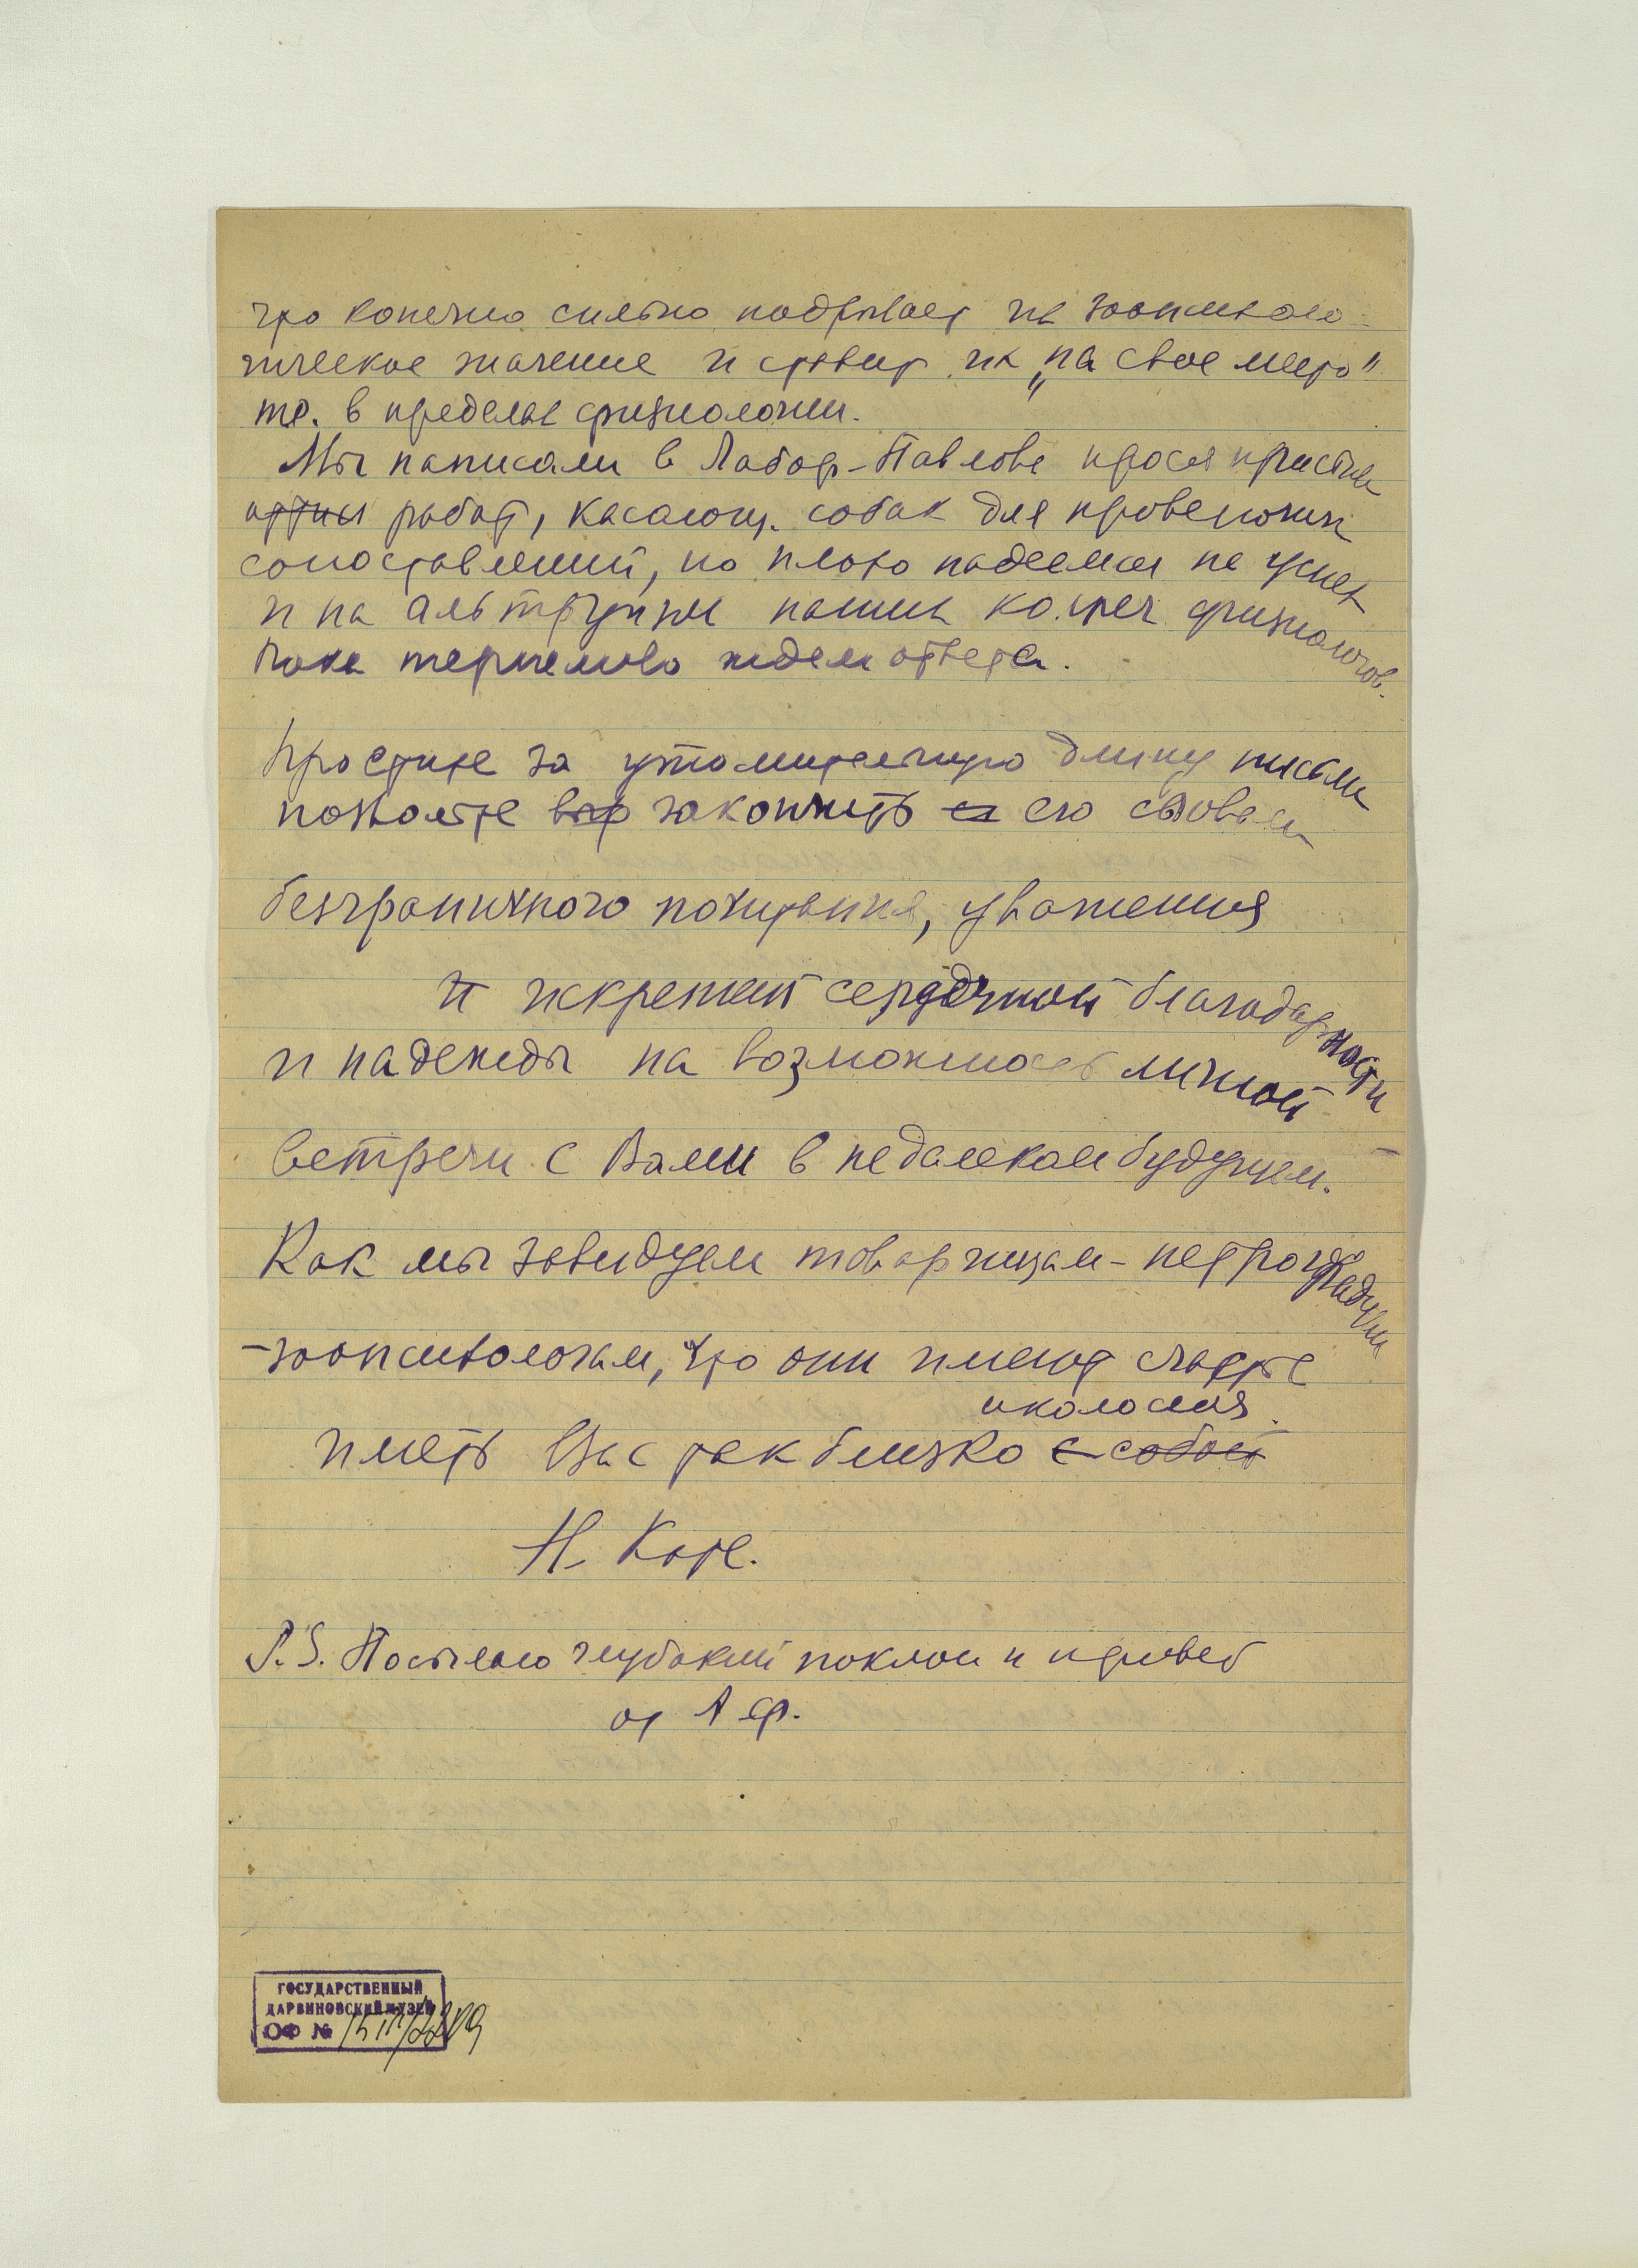 что конечно сильно подрывает их зоопсихоло-
гическое значение и ставит их „на свое место"
т.е. в пределы физиологии.
Мы написали в Лабор. Павлова прося прислать
оттис работ, касающ. собак для провел
сопоставлений, но плохо надеемся на успех
и на альтруизм наших коллег физиологов.
Пока терпеливо ждем ответа.
Простите за утомительную длину письма
позвольте закончить его словами
безграничного почитания, уважения
и искренней сердечной благодарности
и надежды на возможность личной
встречи с Вами в недалеком будущем.
Как мы завидуем товарищам-петроградским
-зоопсихологам, что они имеют счастье
около себя.
иметь Вас так близко с собой
Н. Котс.
P.S. Посылаю глубокий поклон и привет
от А.Ф.
ГОСУДАРСТВЕННЫЙ
ДАРВИНОВСКИЙ МУЗЕЙ
ОФ №